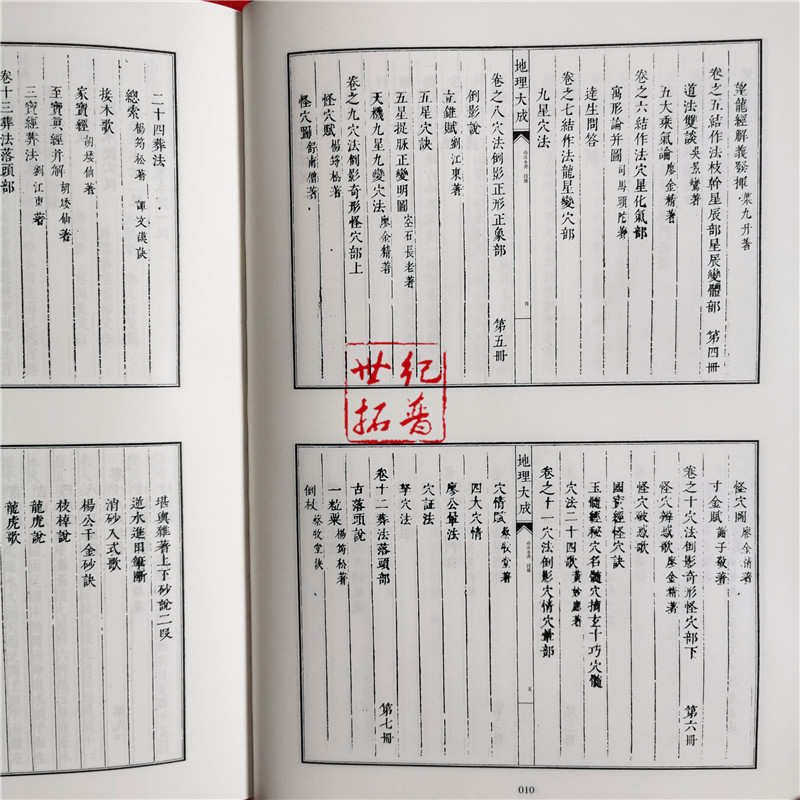 望龍經解義發揮 葉九升著
卷之五結作法枝幹星辰部星辰變體部 第四冊
道法雙談 吳景鸞著
五大乘氣論 廖金精著
卷之六結作法穴星化氣部
寓形論并圖 司馬頭陀著
達生問答
卷之七結作法龍星變穴部
九星穴法
地理大成
卷之八穴法倒影正形正象部 第五冊
倒影說
立錐賦 劉江東著
五星穴訣
五星捉脉正變明圖
天機九星九變穴法 廖金精著
卷之九穴法倒影奇形怪穴部上
怪穴賦 楊筠松著
怪穴圖
怪穴圖 廖金精著
寸金賦 謝子敬著
卷之十穴法倒影奇形怪穴部下 第六冊
怪穴辨惑歌 廖金精著
怪穴破惑歌
國寶經怪穴訣
玉髓經秘穴名髓穴摘玄十巧穴髓
穴法二十四歌 黃妙應著
卷之十一穴法倒影穴情穴暈部
地理大成
穴情賦 蔡牧堂著
四大穴情
廖公暈法
穴証法
拏穴法
卷十二葬法落頭部 第七冊
古落頭說
一粒粟 楊筠松著
倒杖 蔡牧堂訣
二十四葬法
總索 楊筠松著
接木歌
家寶經 胡矮仙著
至寶眞經并解 胡矮仙著
三寶經葬法 劉江東著
卷十三葬法落頭部
堪輿雜著上下砂說二段
道水進田筆斷
消砂入式歌
楊公千金砂訣
枝棹說
龍虎說
龍虎歌
世紀
拓普
010